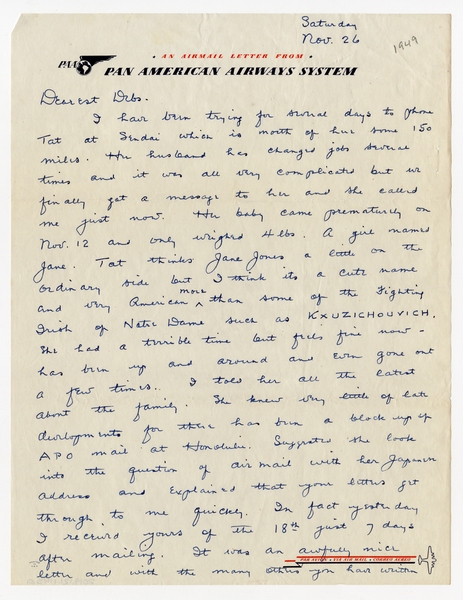 Saturday
Nov. 26
1949
AN AIRMAIL LETTER FROM
PAA
PAN AMERICAN AIRWAYS SYSTEM
Dearest Debs.
I have been trying for several days to phone
Tat at Sendai which is north of here some 150
miles. Her husband has changed jobs several
times and it was all very complicated but we
finally got a message to her and she called
me just now. Her baby came prematurely on
Nov. 12 and only weighed 4 lbs. A girl named
Jane. Tat thinks Jane Jones a little on the
ordinary side but I think its a cute name
and very American more than some of the Fighting
Irish of Notre Dame such as KXUZICHOUVICH.
She had a terrible time but feels fine now -
has been up and around and even gone out
a few times. I told her all the latest
about the family. She knew very little of late
developments for there has been a block up of
APO mail at Honolulu. Suggested she look
into the question of air mail with her Japanese
address and explained that your letters get
through to me quickly. In fact yesterday
I received yours of the 18th just 7 days
after mailing. It was an awfully nice
PAR AVION • VIA AIR MAIL • CORREO AEREO
letter and with the many others you have written